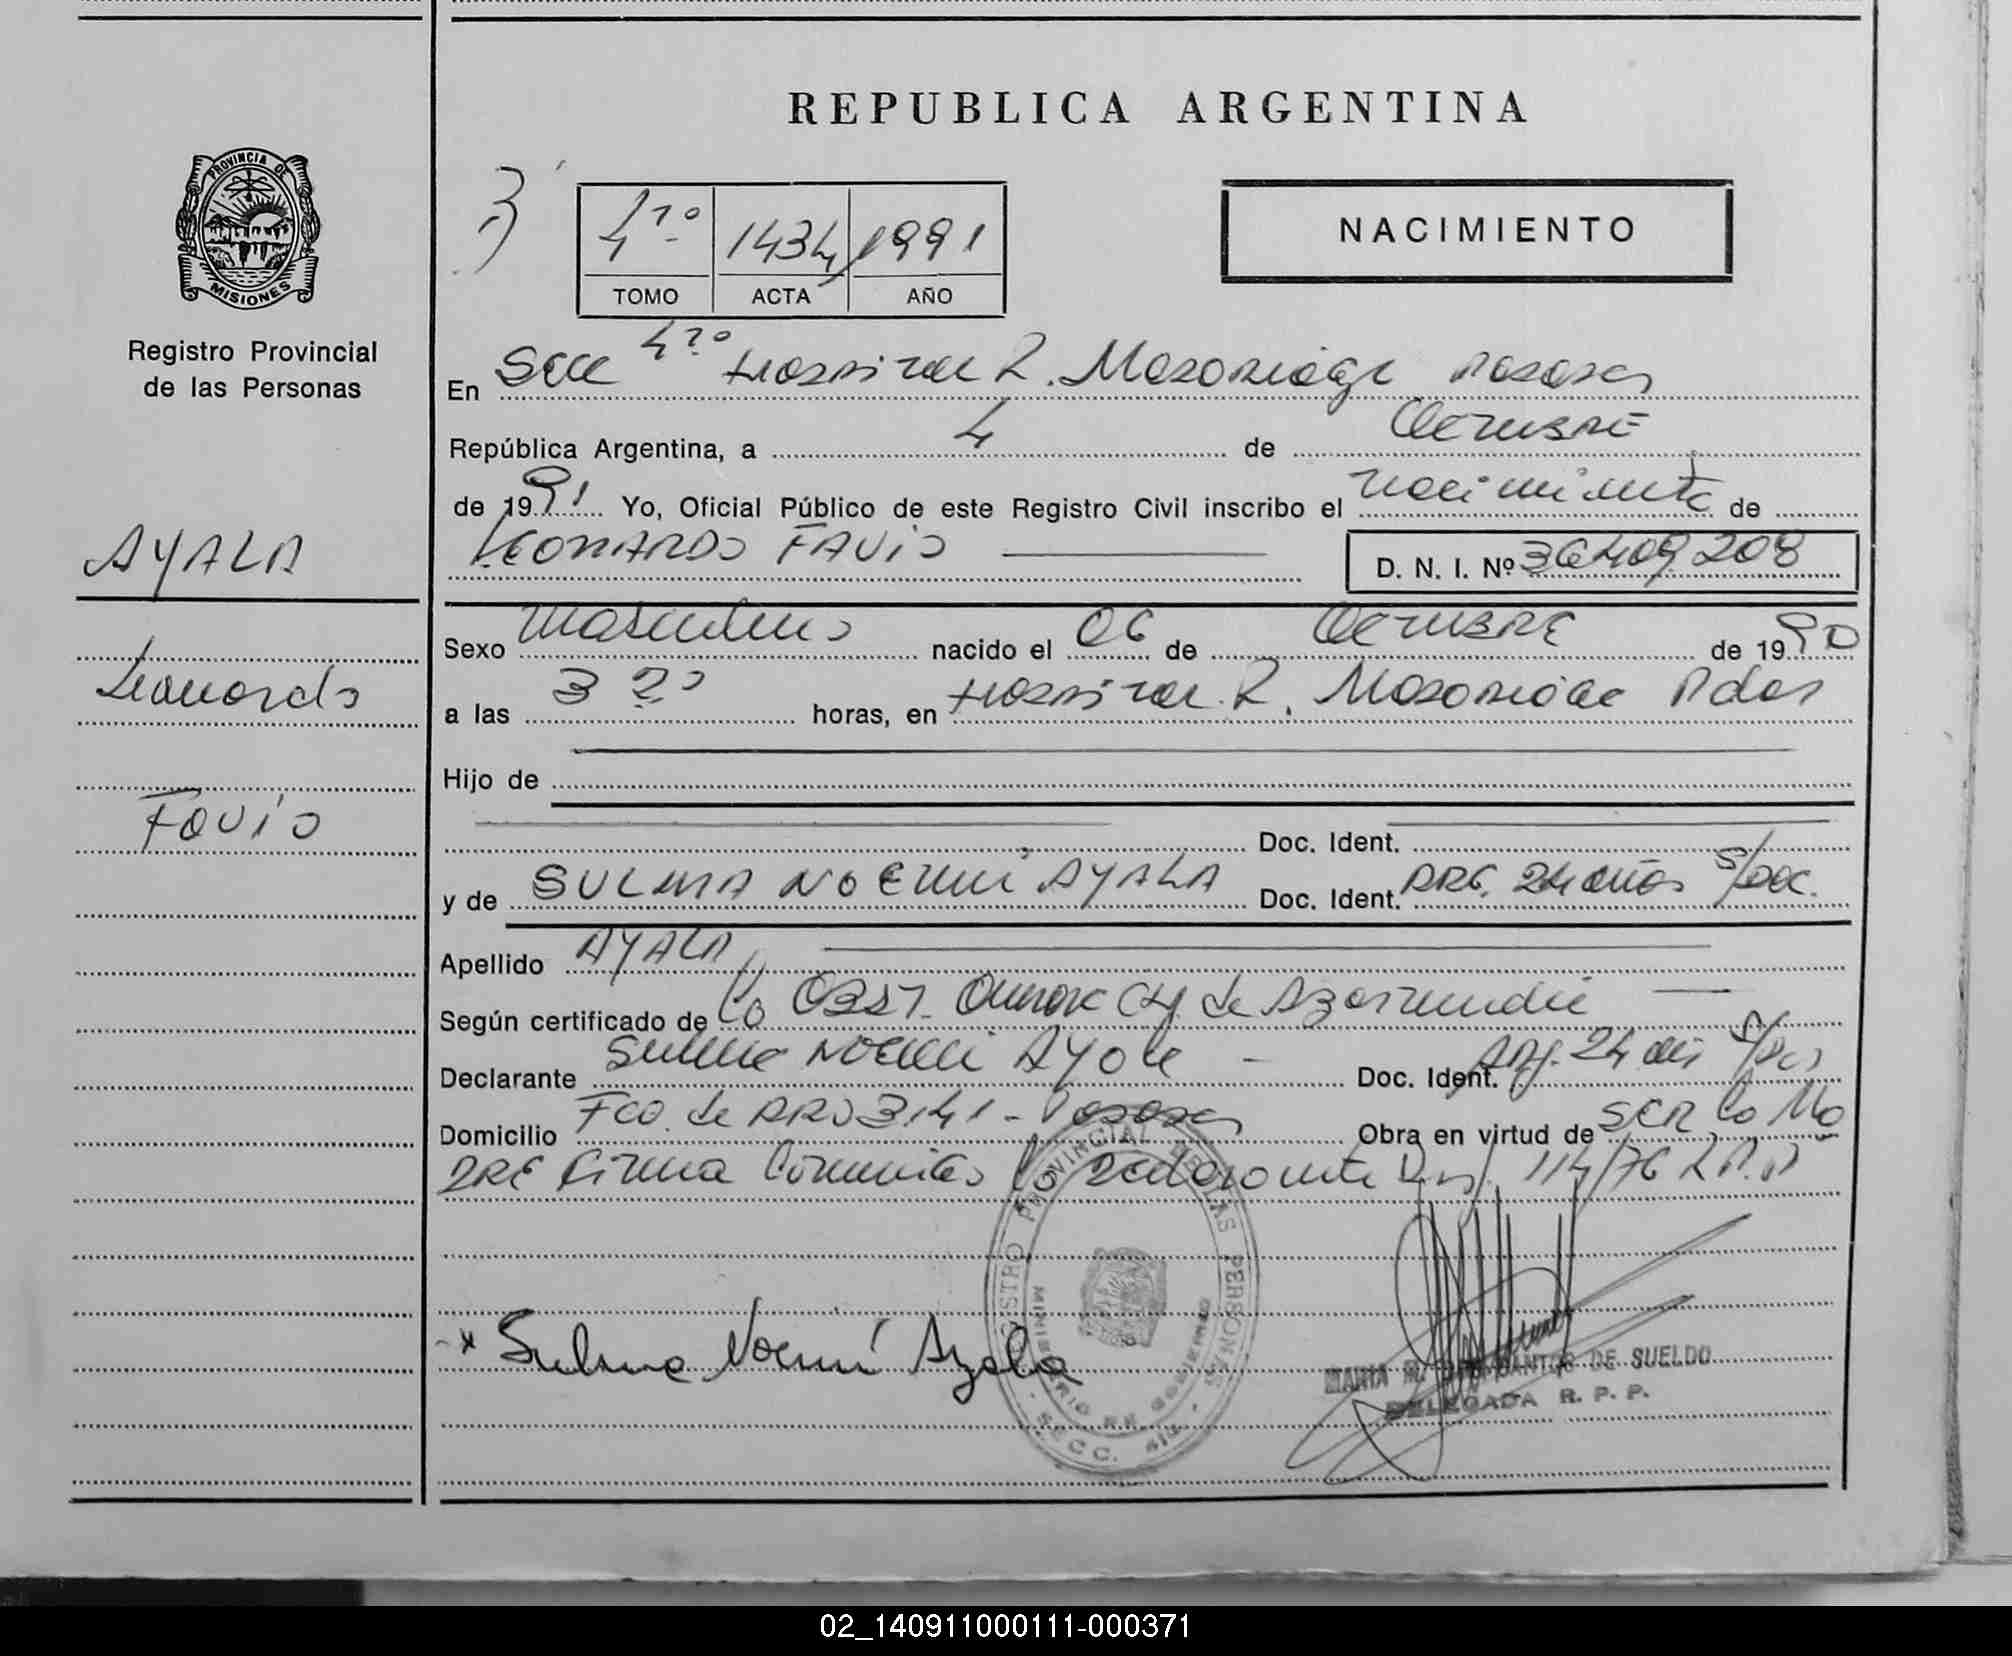 REPUBLICA ARGENTINA
PROVINCIA DE
MISIONES
Registro Provincial
de las Personas
4to 1434 1991
TOMO ACTA AÑO
NACIMIENTO
En Secc 4to Hospital R. Madariaga Posadas
República Argentina, a 4 de Octubre
de 1991 Yo, Oficial Público de este Registro Civil inscribo el nacimiento de
AYALA
LEONARDO FAVIO
D. N. I. Nº 36.409.208
Sexo Masculino nacido el 06 de Octubre de 1990
Leonardo
a las 3 horas, en Hospital R. Madariaga Pdas
Hijo de
Favio
Doc. Ident.
y de SULMA NOEMÍ AYALA Doc. Ident. ARG. 24 años s/Doc.
Apellido AYALA
Según certificado de la Obst. de
Declarante Sulma Noemi Ayala - Doc. Ident. Arg. 24 años s/Doc
Domicilio Fco. de Haro 3141 - Posadas Obra en virtud de SER la Ma
DRE Firma la declarante 114/76 R.P.P
REGISTRO PROVINCIAL DE LAS PERSONAS
MINISTERIO DE GOBIERNO
SECC. 4ta
Sulma Noemí Ayala
MARIA M. DE SUELDO
DELEGADA R. P. P.
02_140911000111-000371